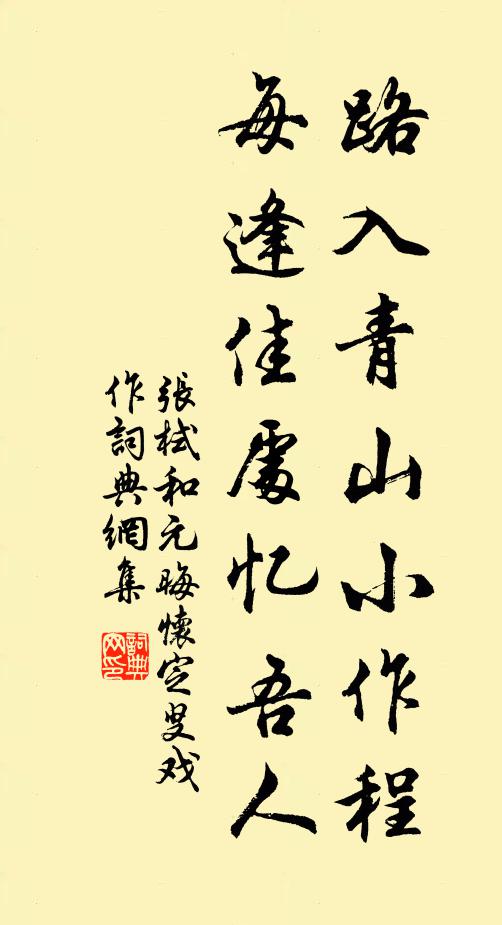 路入青山小作程
每逢佳處忆吾人
張栻和元晦懷定叟戏
作詞典網集
詞典
网印